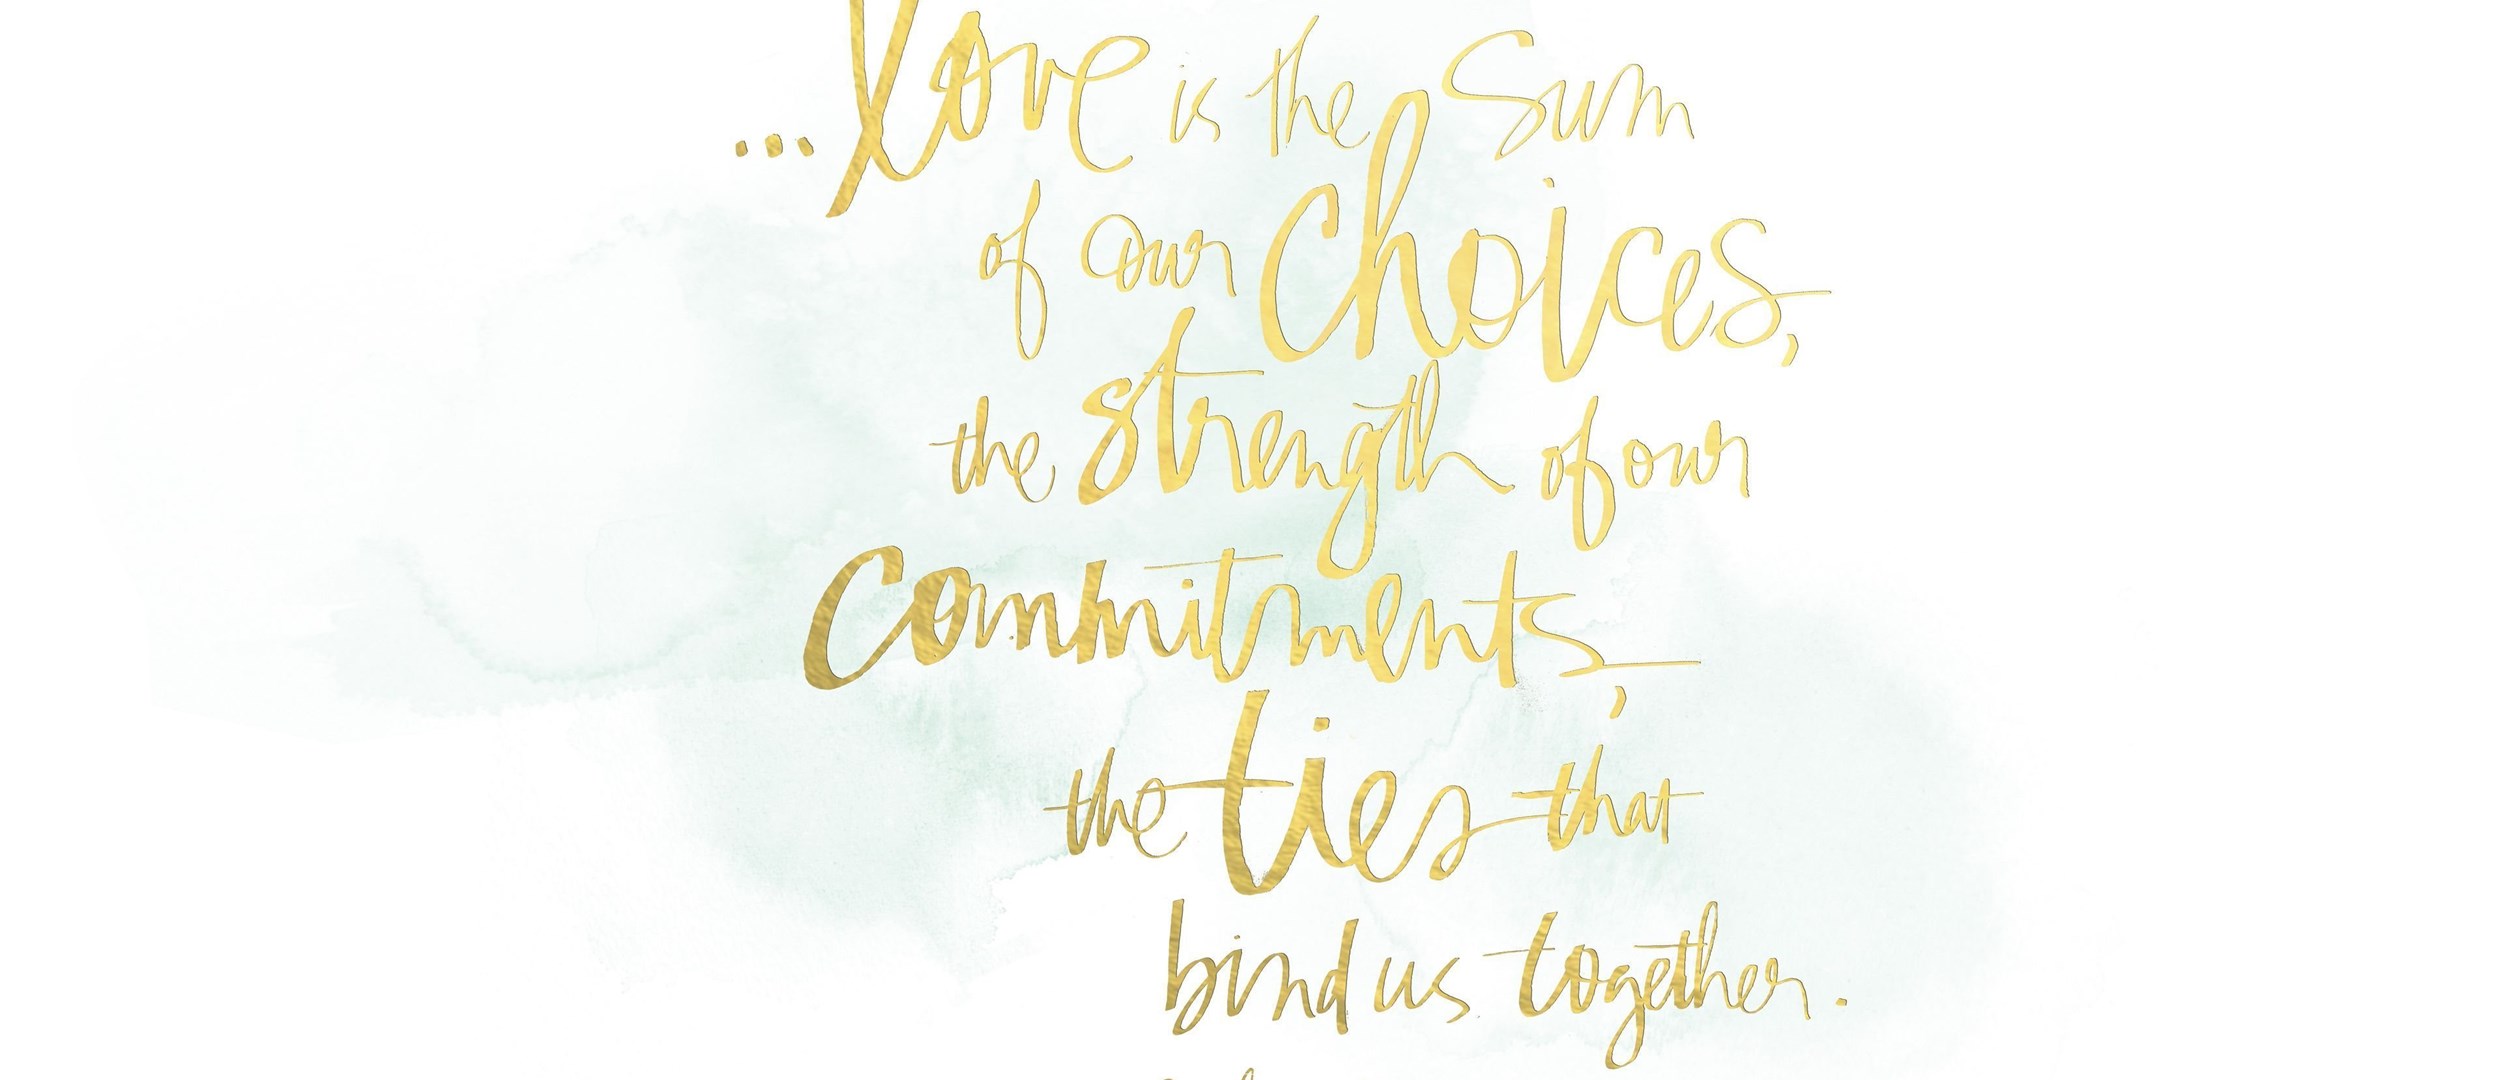 ...love is the Sum
of our Choices,
the strength of our
Commitments,
the ties that
bind us together.